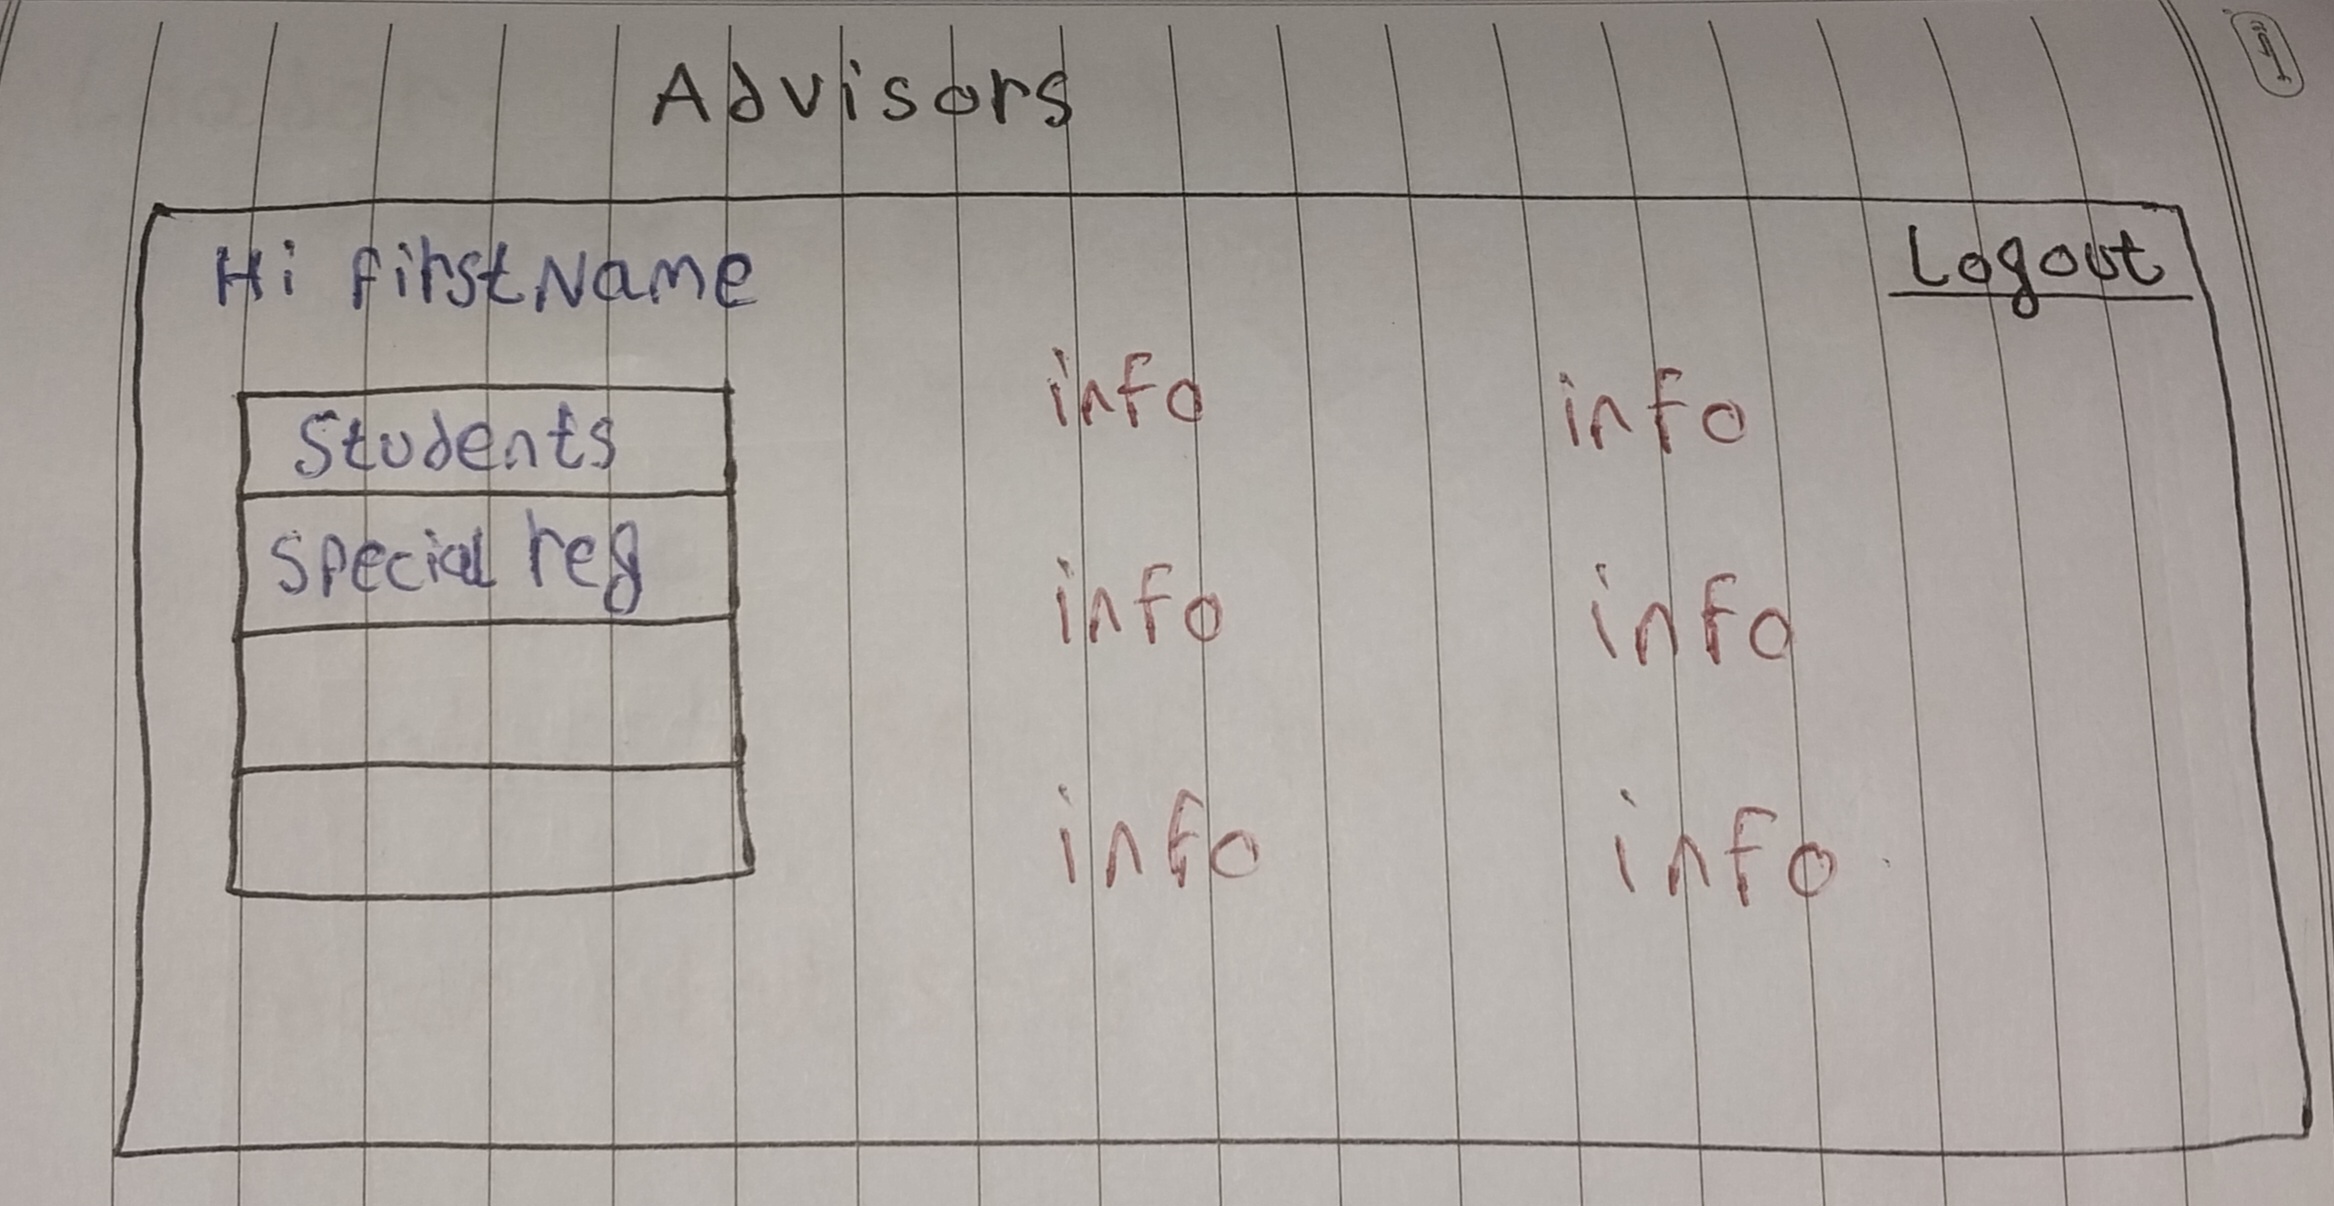 Advisors
Hi firstName
Logout
Students
special reg
info
info
info
info
info
info